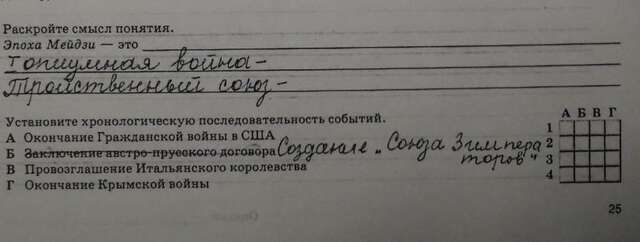 Раскройте смысл понятия.
Эпоха Мейдзи — это
I опиумная война –
Тройственный союз –
Установите хронологическую последовательность событий.
А Б В Г
А Окончание Гражданской войны в США 1
Б Заключение австро-прусского договора Создание „Союза 3 импера 2
торов" 3
В Провозглашение Итальянского королевства
4
Г Окончание Крымской войны
25